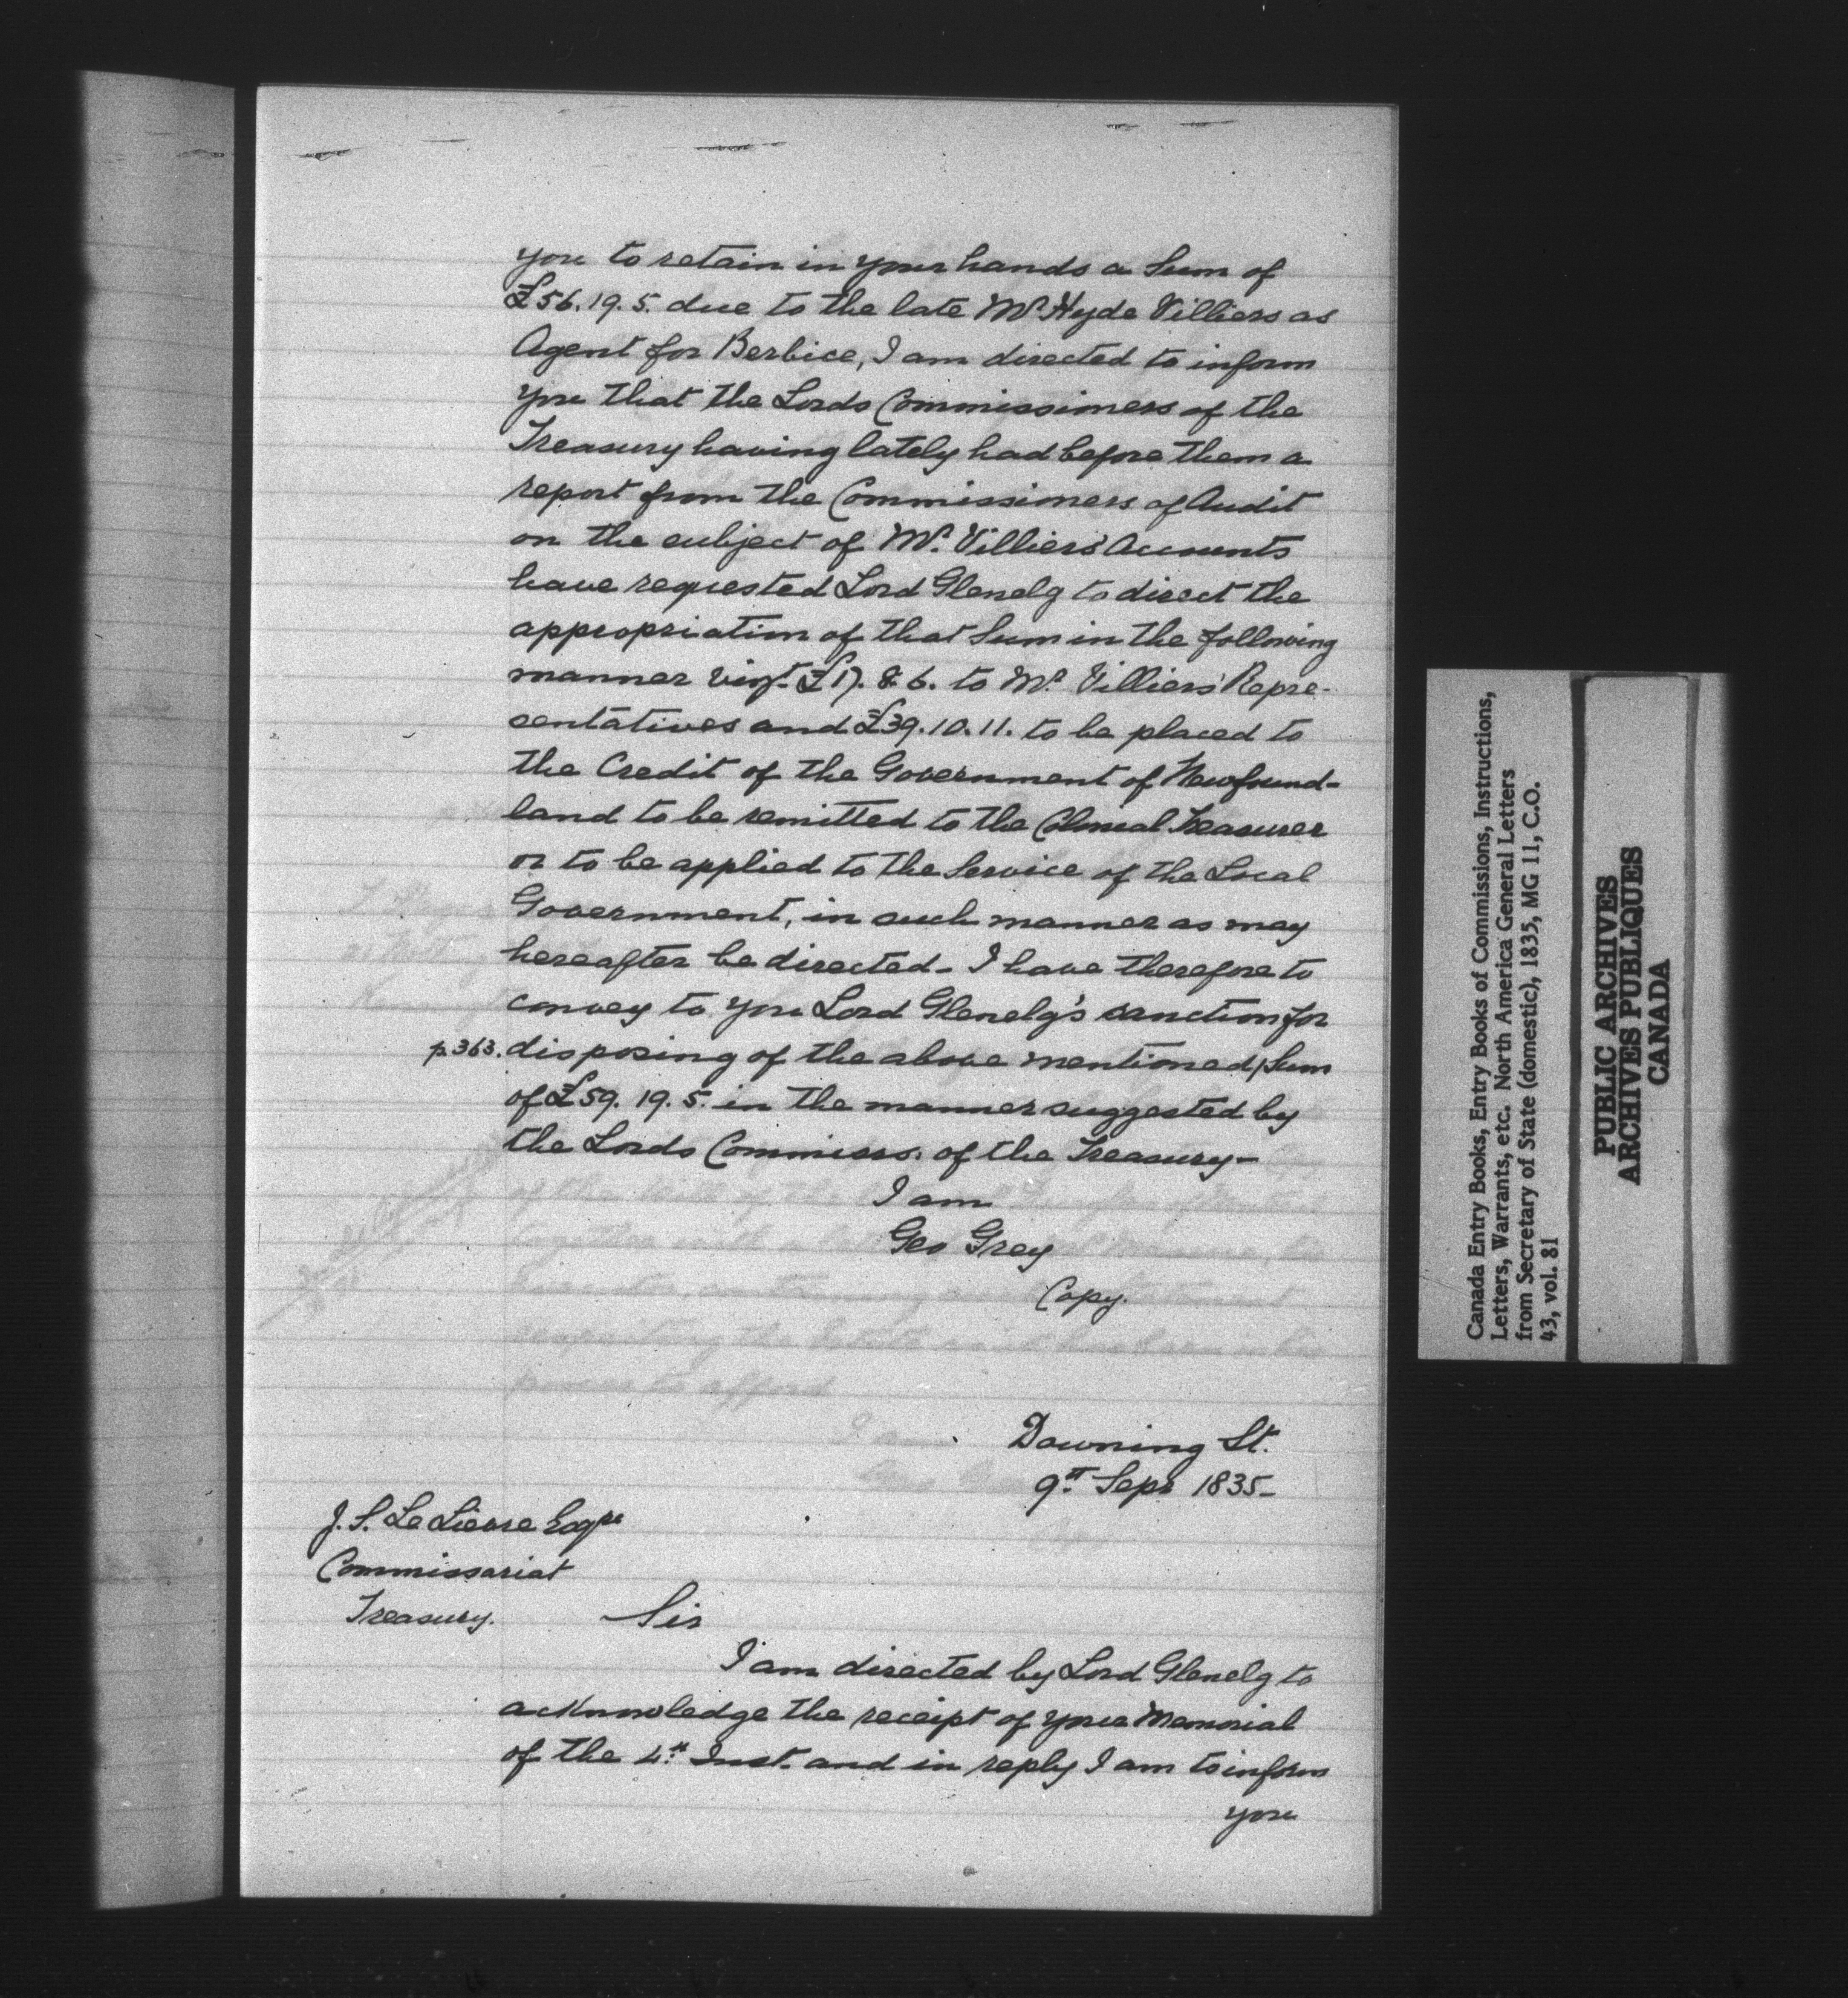 you to retain in your hands a Sum of
£56.19.5. due to the late Mr. Hyde Villiers as
Agent for Berbice, I am directed to inform
you that the Lords Commissioners of the
Treasury having lately had before them a
report from the Commissioners of Audit
on the subject of Mr. Villiers' Accounts
have requested Lord Glenelg to direct the
appropriation of that Sum in the following
manner vizt. £17.8.6. to Mr. Villiers' Repre-
sentatives and £39.10.11. to be placed to
the Credit of the Government of Newfound-
land to be remitted to the Colonial Treasurer
or to be applied to the Service of the Local
Government, in such manner as may
hereafter be directed - I have therefore to
convey to you Lord Glenelg's sanction for
p.363. disposing of the above mentioned / Sum
of £59.19.5. in the manner suggested by
the Lords Commissrs. of the Treasury -
I am
Geo Grey
Copy.
Downing St.
9th Sepr 1835 -
J. S. Le Lievre Esqre
Commissariat
Treasury.
Sir
I am directed by Lord Glenelg to
acknowledge the receipt of your Memorial
of the 4th Inst. and in reply I am to inform
you
Canada Entry Books, Entry Books of Commissions, Instructions,
Letters, Warrants, etc. North America General Letters
from Secretary of State (domestic), 1835, MG 11, C.O.
43, vol. 81
PUBLIC ARCHIVES
ARCHIVES PUBLIQUES
CANADA